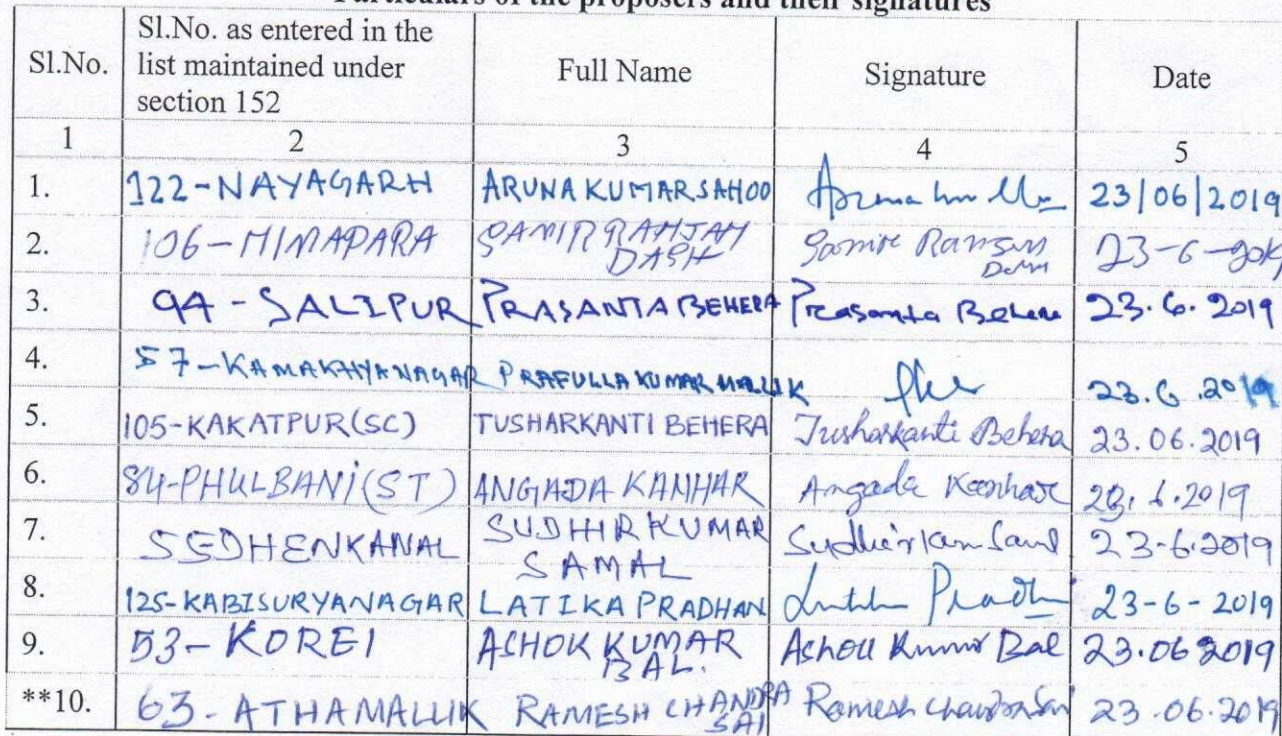 Particulars of the proposers and their signatures
Sl.No. Sl.No. as entered in the list maintained under section 152 Full Name Signature Date
1 2 3 4 5
1. 122-NAYAGARH ARUNA KUMAR SAHOO 23/06/2019
2. 106-NIMAPARA SAMIR RANJAN DASH Samir Ranjan Dash 23-6-2019
3. 94-SALIPUR PRASANTA BEHERA Prasanta Behera 23.6.2019
4. 57-KAMAKHYANAGAR PRAFULLA KUMAR MALLIK 23.6.2019
5. 105-KAKATPUR(SC) TUSHARKANTI BEHERA Tusharkanti Behera 23.06.2019
6. 84-PHULBANI(ST) ANGADA KANHAR Angada Kanhar 23.6.2019
7. 55DHENKANAL SUDHIR KUMAR SAMAL Sudhir Kum Samal 23-6-2019
8. 125-KABISURYANAGAR LATIKA PRADHAN 23-6-2019
9. 53-KOREI ASHOK KUMAR BAL. Ashok Kumar Bal 23.06.2019
**10. 63-ATHAMALLIK RAMESH CHANDRA SAI Ramesh Chandra Sai 23.06.2019